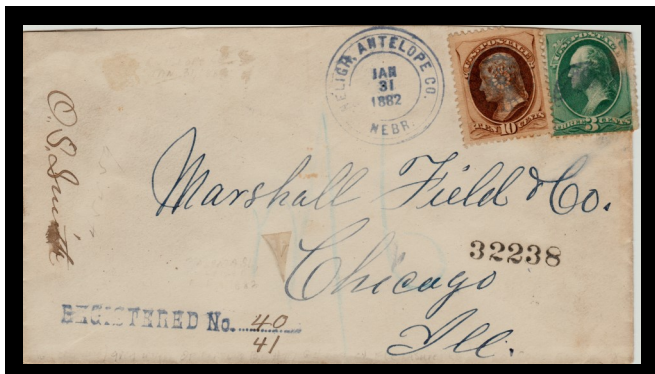 NELIGH, ANTELOPE CO.
JAN
31
1882
NEBR.
U.S. POSTAGE
TEN 10 CENTS
U.S. POSTAGE
THREE 3 CENTS
C. S. Smith
Marshall Field & Co.
32238
Chicago
Ill.
REGISTERED No. 40
41